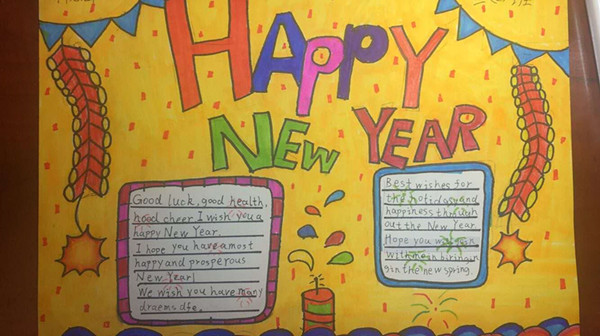 HAPPY
NEW YEAR
Good luck, good health,
hood cheer I wish you a
happy New Year.
I hope you have amost
happy and prosperous
New Year
We wish you have many
draems
Best wishes for
the holidays and
happiness through
out the New Year.
Hope you
with in biringin
gin the new spring.